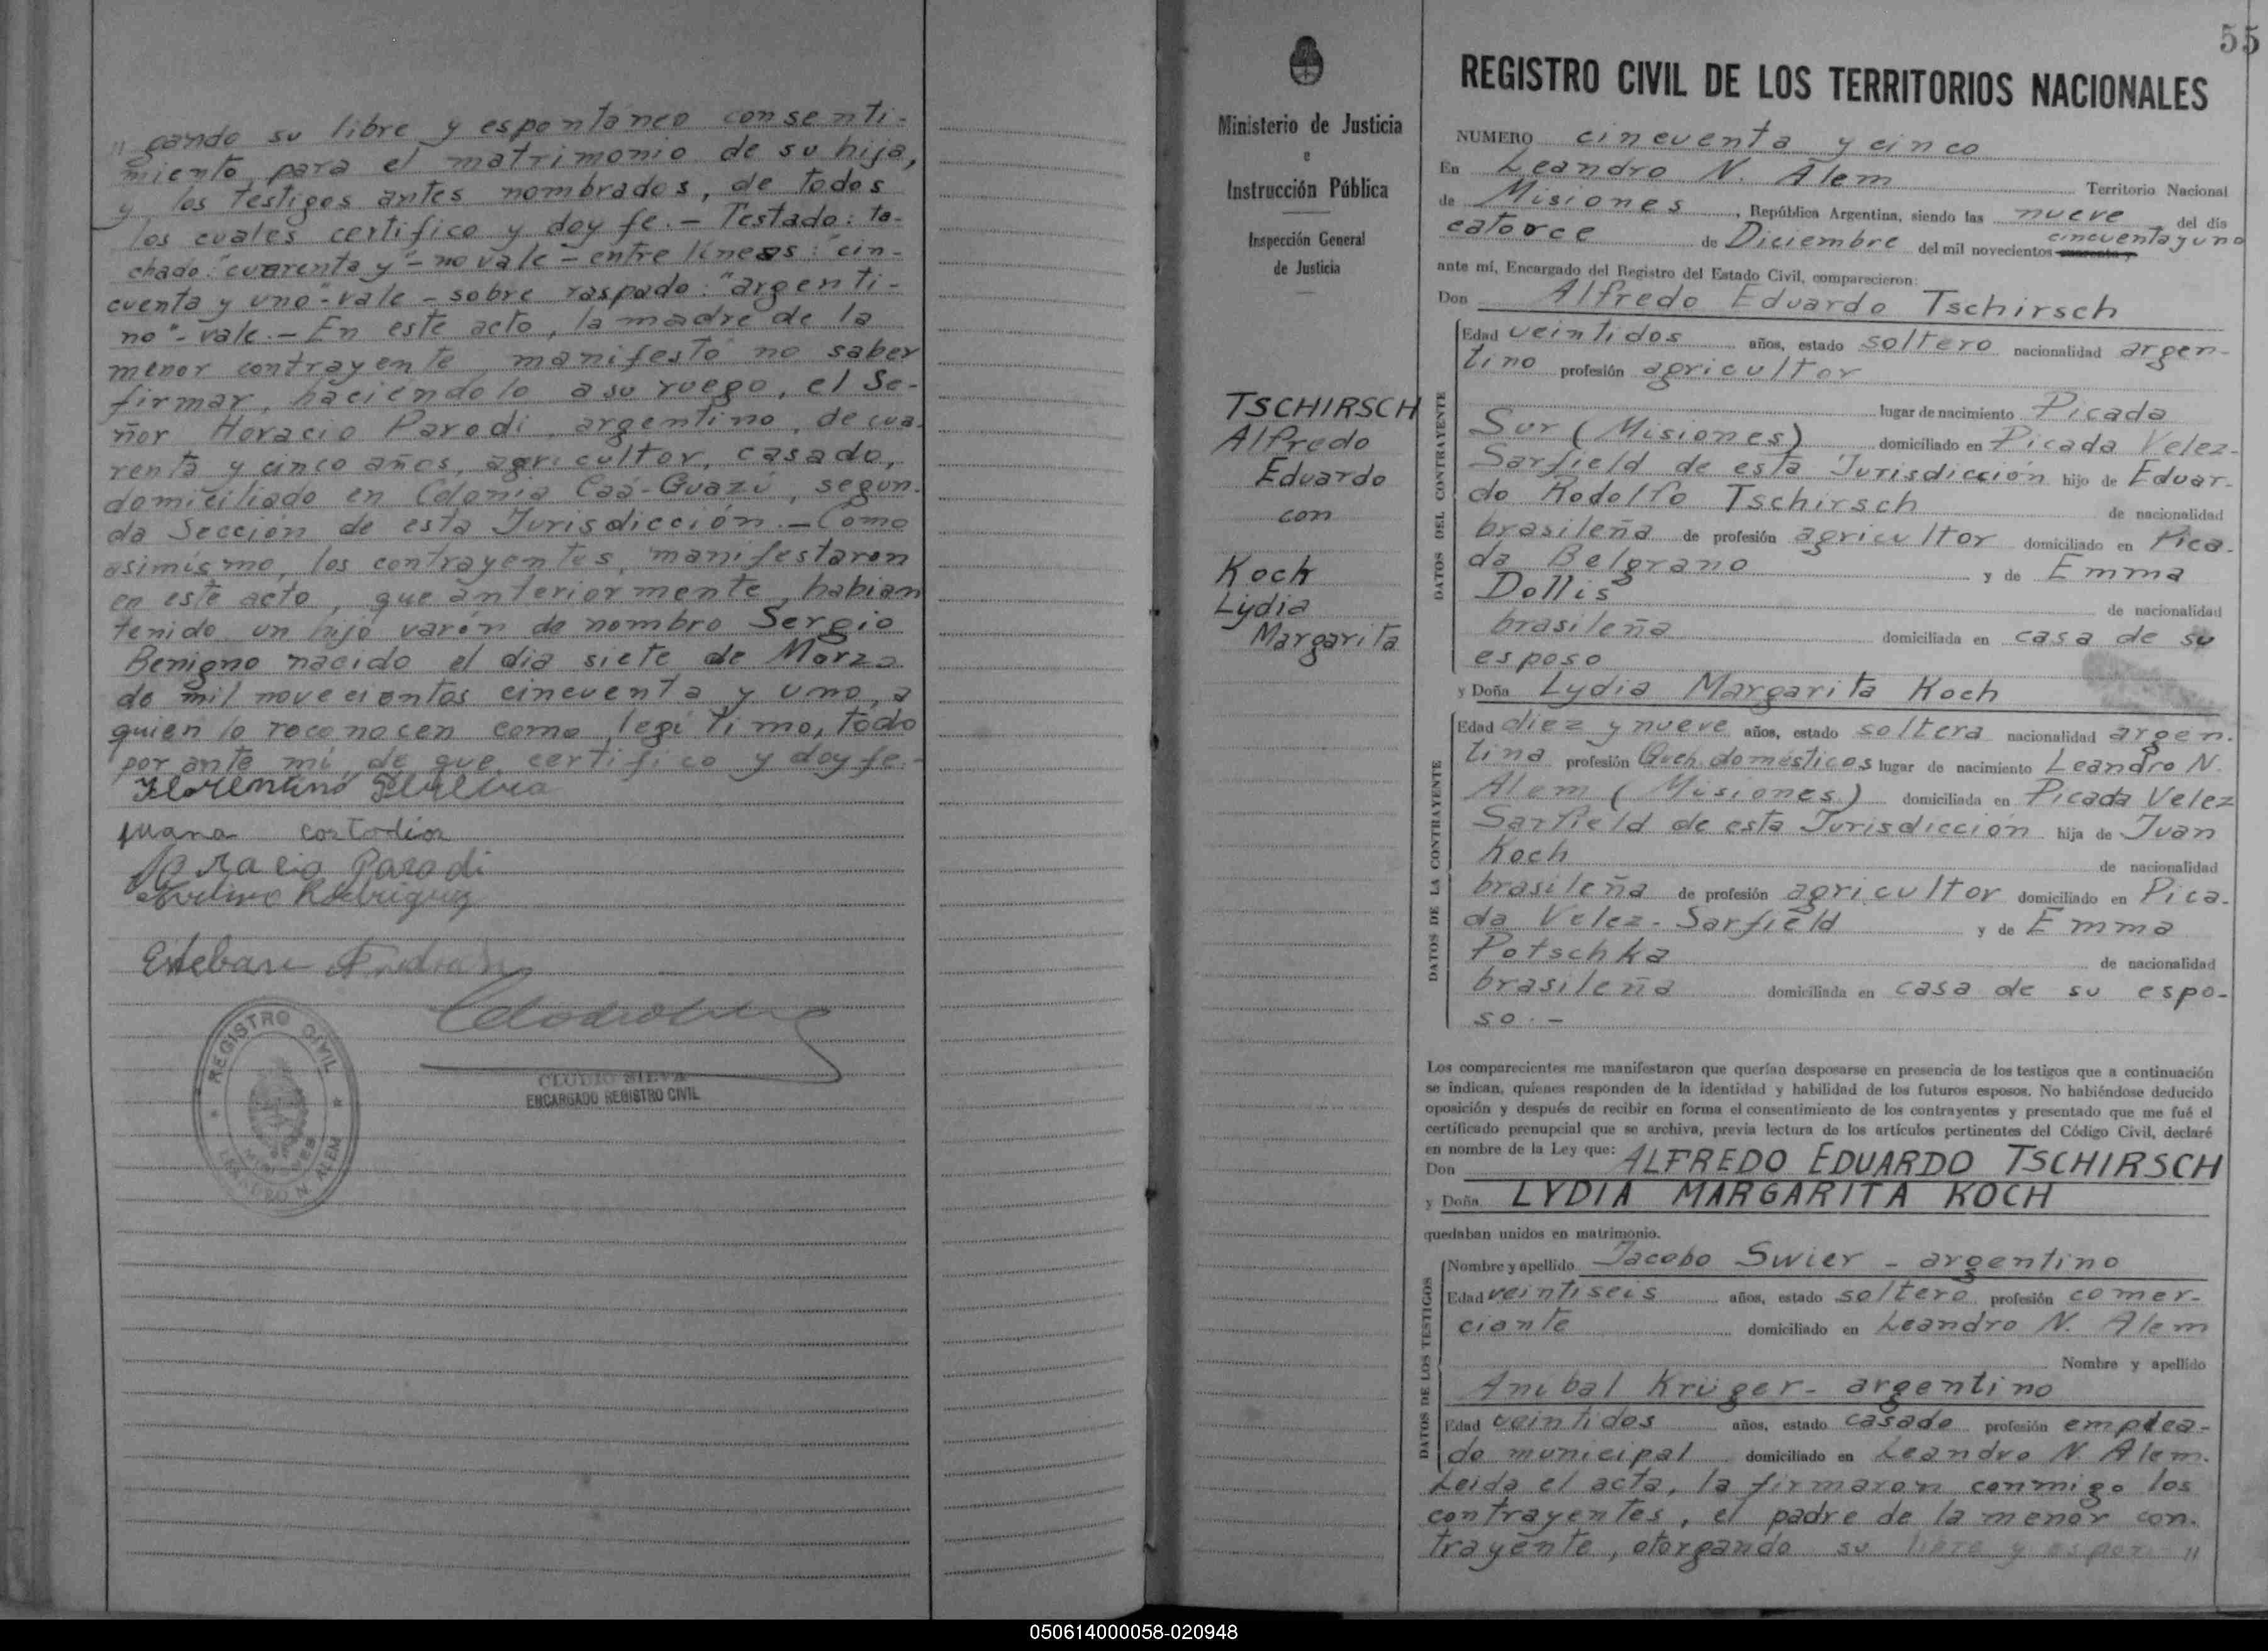 " gando su libre y espontáneo consenti-
miento para el matrimonio de su hija,
y los testigos antes nombrados, de todos
los cuales certifico y doy fe.- Testado: ta-
chado: "cuarenta y"- no vale - entre líneas: "cin-
cuenta y uno"- vale - sobre raspado: "argenti-
no"- vale.- En este acto, la madre de la
menor contrayente manifestó no saber
firmar, haciéndolo a su ruego, el Se-
ñor Horacio Parodi, argentino, de cua-
renta y cinco años, agricultor, casado,
domiciliado en Colonia Caá-Guazú, segun-
da Sección de esta Jurisdicción.- Como
asimismo, los contrayentes, manifestaron
en este acto, que anteriormente, habian
tenido un hijo varón de nombre Sergio
Benigno nacido el dia siete de Marzo
de mil novecientos cincuenta y uno, a
quien lo reconocen como legítimo, todo
por ante mí, de que certifico y doy fe.-
Juana
Horacio Parodi
Rodriguez
Esteban
REGISTRO CIVIL
LEANDRO N. ALEM
MISIONES
CLUDIO SILVA
ENCARGADO REGISTRO CIVIL
55
Ministerio de Justicia
e
Instrucción Pública
Inspección General
de Justicia
TSCHIRSCH
Alfredo
Eduardo
con
Koch
Lydia
Margarita
REGISTRO CIVIL DE LOS TERRITORIOS NACIONALES
NUMERO cincuenta y cinco
En Leandro N. Alem Territorio Nacional
de Misiones, República Argentina, siendo las nueve del día
catorce de Diciembre del mil novecientos cuarenta y cincuenta y uno
ante mí, Encargado del Registro del Estado Civil, comparecieron:
Don Alfredo Eduardo Tschirsch
DATOS DEL CONTRAYENTE
Edad veintidos años, estado soltero nacionalidad argen-
tino profesión agricultor
lugar de nacimiento Picada
Sur (Misiones) domiciliado en Picada Velez-
Sarfield de esta Jurisdicción hijo de Eduar-
do Rodolfo Tschirsch de nacionalidad
brasileña de profesión agricultor domiciliado en Pica-
da Belgrano y de Emma
Dollis de nacionalidad
brasileña domiciliada en casa de su
esposo
y Doña Lydia Margarita Koch
DATOS DE LA CONTRAYENTE
Edad diez y nueve años, estado soltera nacionalidad argen-
tina profesión Queh. domésticos lugar de nacimiento Leandro N.
Alem (Misiones) domiciliada en Picada Velez
Sarfield de esta Jurisdicción hija de Juan
Koch de nacionalidad
brasileña de profesión agricultor domiciliado en Pica-
da Velez-Sarfield y de Emma
Potschka de nacionalidad
brasileña domiciliada en casa de su espo-
so.-
Los comparecientes me manifestaron que querían desposarse en presencia de los testigos que a continuación
se indican, quienes responden de la identidad y habilidad de los futuros esposos. No habiéndose deducido
oposición y después de recibir en forma el consentimiento de los contrayentes y presentado que me fué el
certificado prenupcial que se archiva, previa lectura de los artículos pertinentes del Código Civil, declaré
en nombre de la Ley que:
Don ALFREDO EDUARDO TSCHIRSCH
y Doña LYDIA MARGARITA KOCH
quedaban unidos en matrimonio.
DATOS DE LOS TESTIGOS
Nombre y apellido Jacobo Swier - argentino
Edad veintiseis años, estado soltero profesión comer-
ciante domiciliado en Leandro N. Alem
Nombre y apellido
Anibal Krüger - argentino
Edad veintidos años, estado casado profesión emplea-
do municipal domiciliado en Leandro N. Alem.
Leida el acta, la firmaron conmigo los
contrayentes, el padre de la menor con-
trayente, otorgando su libre y espon "
050614000058-020948